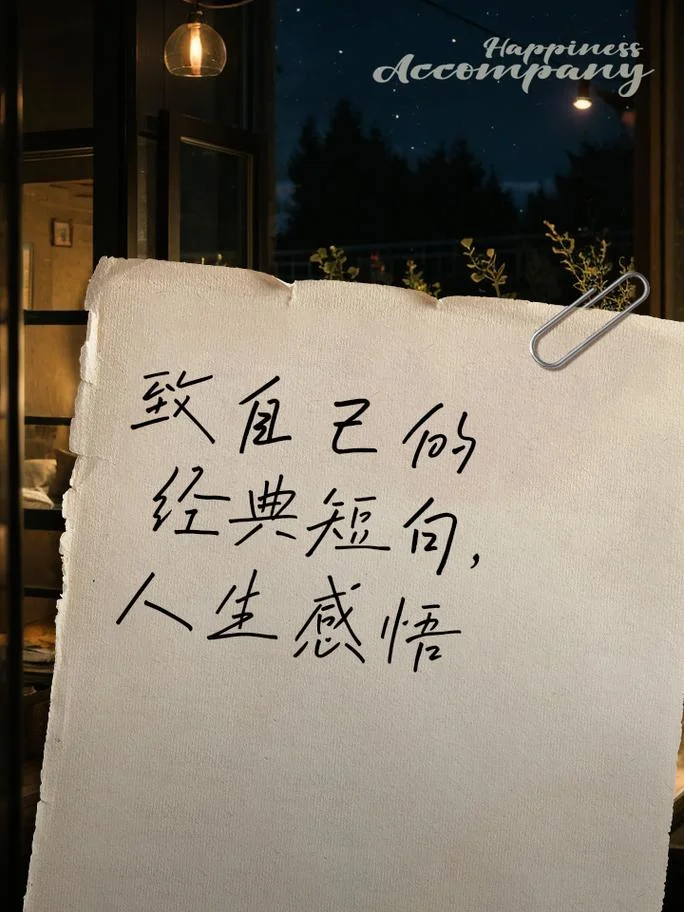 Happiness
Accompany
致自己的
经典短句,
人生感悟